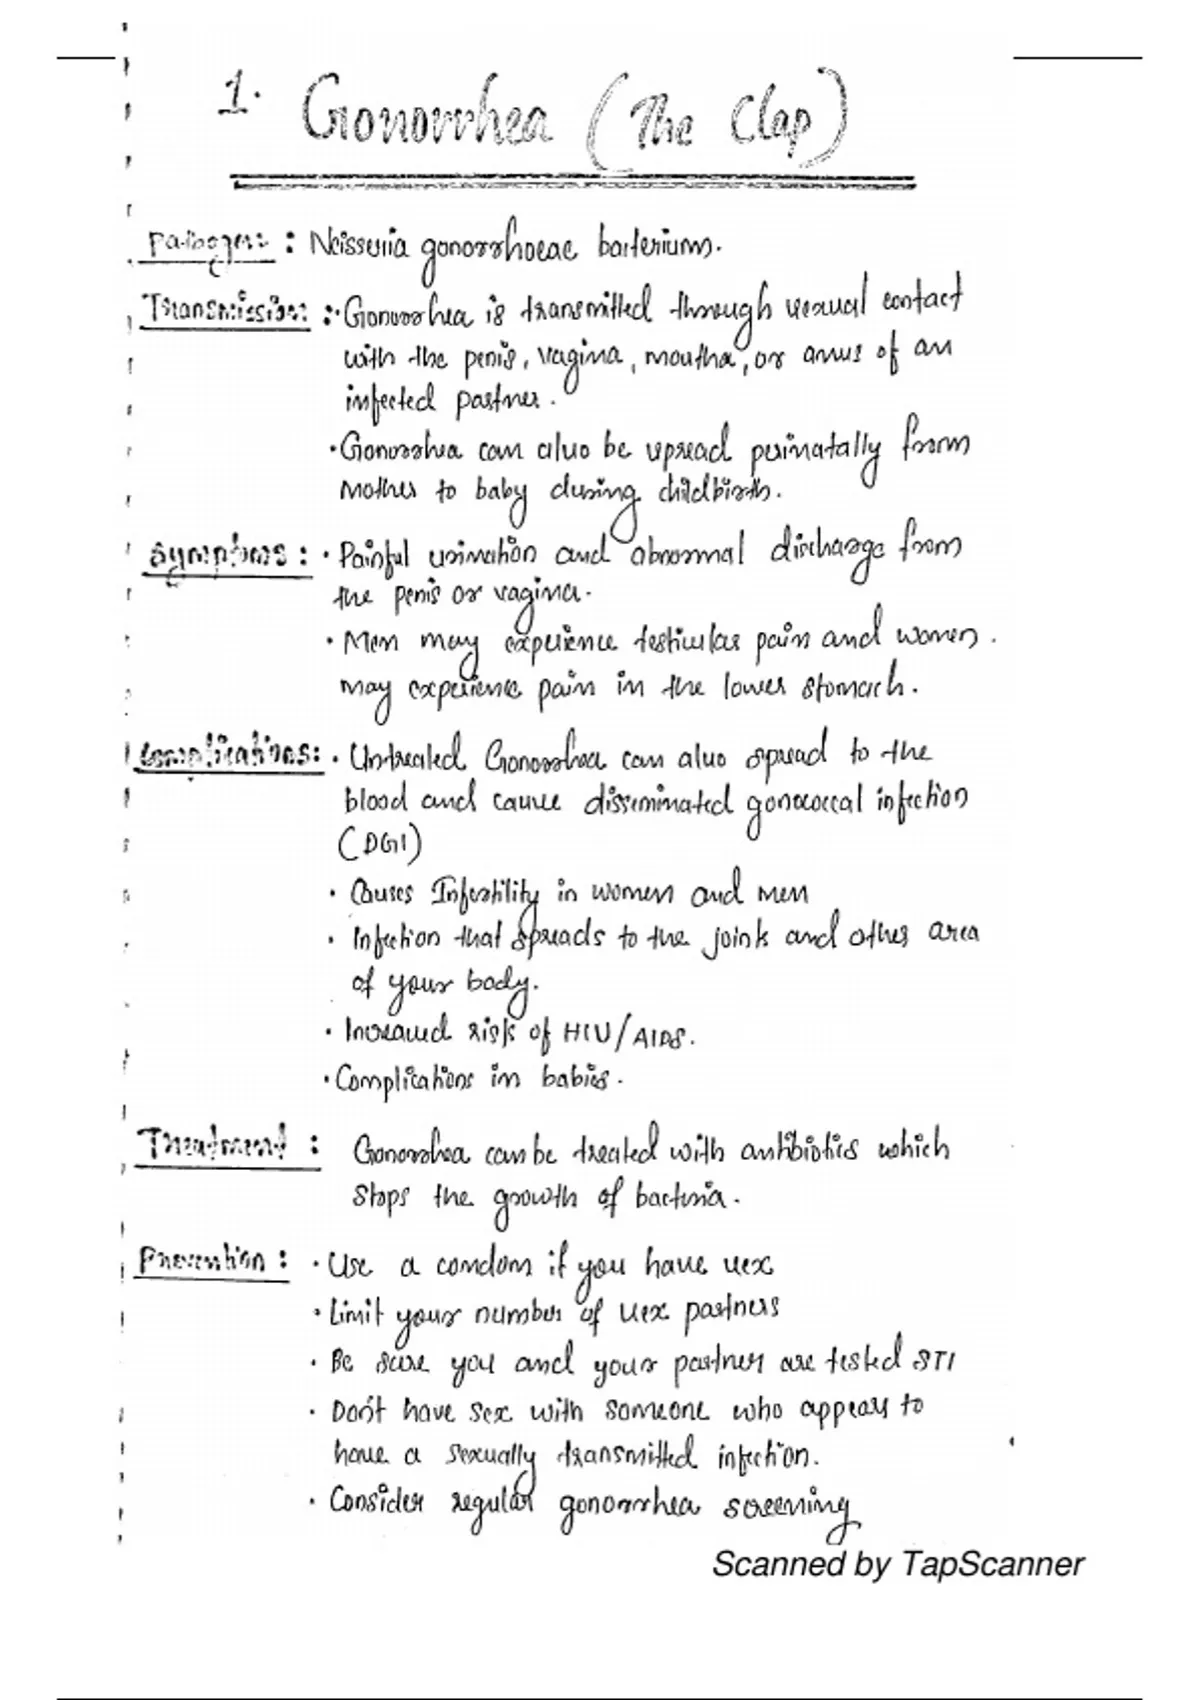 1. Gonorrhea (The Clap)
Pathogen : Neisseria gonorrhoeae bacterium.
Transmission : · Gonorrhea is transmitted through sexual contact
with the penis, vagina, moutha, or anus of an
infected partner.
· Gonorrhea can also be spread perinatally from
mother to baby during childbirth.
Symptoms : · Painful urination and abnormal discharge from
the penis or vagina.
· Men may experience testicular pain and women.
may experience pain in the lower stomach.
Complications: · Untreated Gonorrhea can also spread to the
blood and cause disseminated gonococcal infection
(DGI)
· Causes Infertility in women and men
· Infection that spreads to the joints and other area
of your body.
· Increased risk of HIV/AIDS.
· Complications in babies.
Treatment : Gonorrhea can be treated with antibiotics which
stops the growth of bacteria.
Prevention : · Use a condom if you have sex
· Limit your number of sex partners
· Be sure you and your partner are tested STI
· Don't have sex with someone who appears to
have a sexually transmitted infection.
· Consider regular gonorrhea screening
Scanned by TapScanner